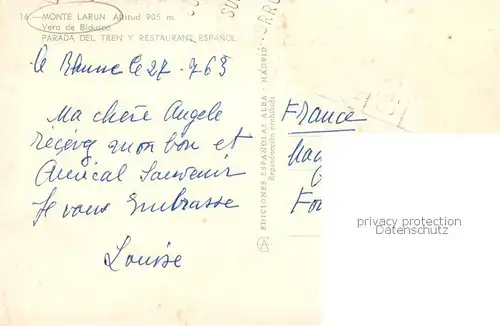 16.—MONTE LARUN Altitud 905 m.
Vera de Bidasoa
PARADA DEL TREN Y RESTAURANT ESPAÑOL
le 27-7 63
Ma chère Angele
recevez mon bon et
Amical Souvenir
Je vous Embrasse
Louise
EDICIONES ESPAÑOLAS ALBA - MADRID
Reproducción prohibida
France
privacy protection
oldthing.com